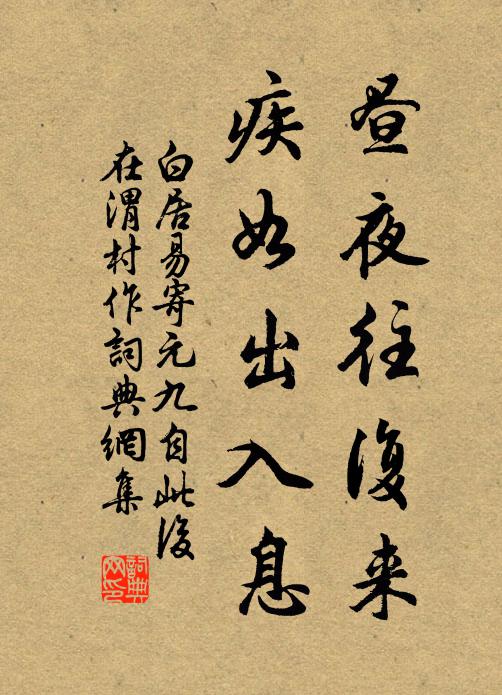 昼夜往復来
疾如出入息
白居易寄元九自此後
在渭村作詞典網集
詞典
网印